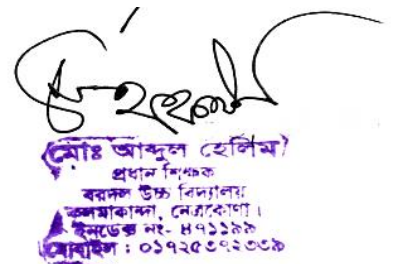 (মোঃ আব্দুল হেলিম)
প্রধান শিক্ষক
বরদল উচ্চ বিদ্যালয়
কলমাকান্দা, নেত্রকোণা।
ইনডেক্স নং- ৪৭১১৯৯
মোবাইল : ০১৭২৫৩৭২৩৩৯